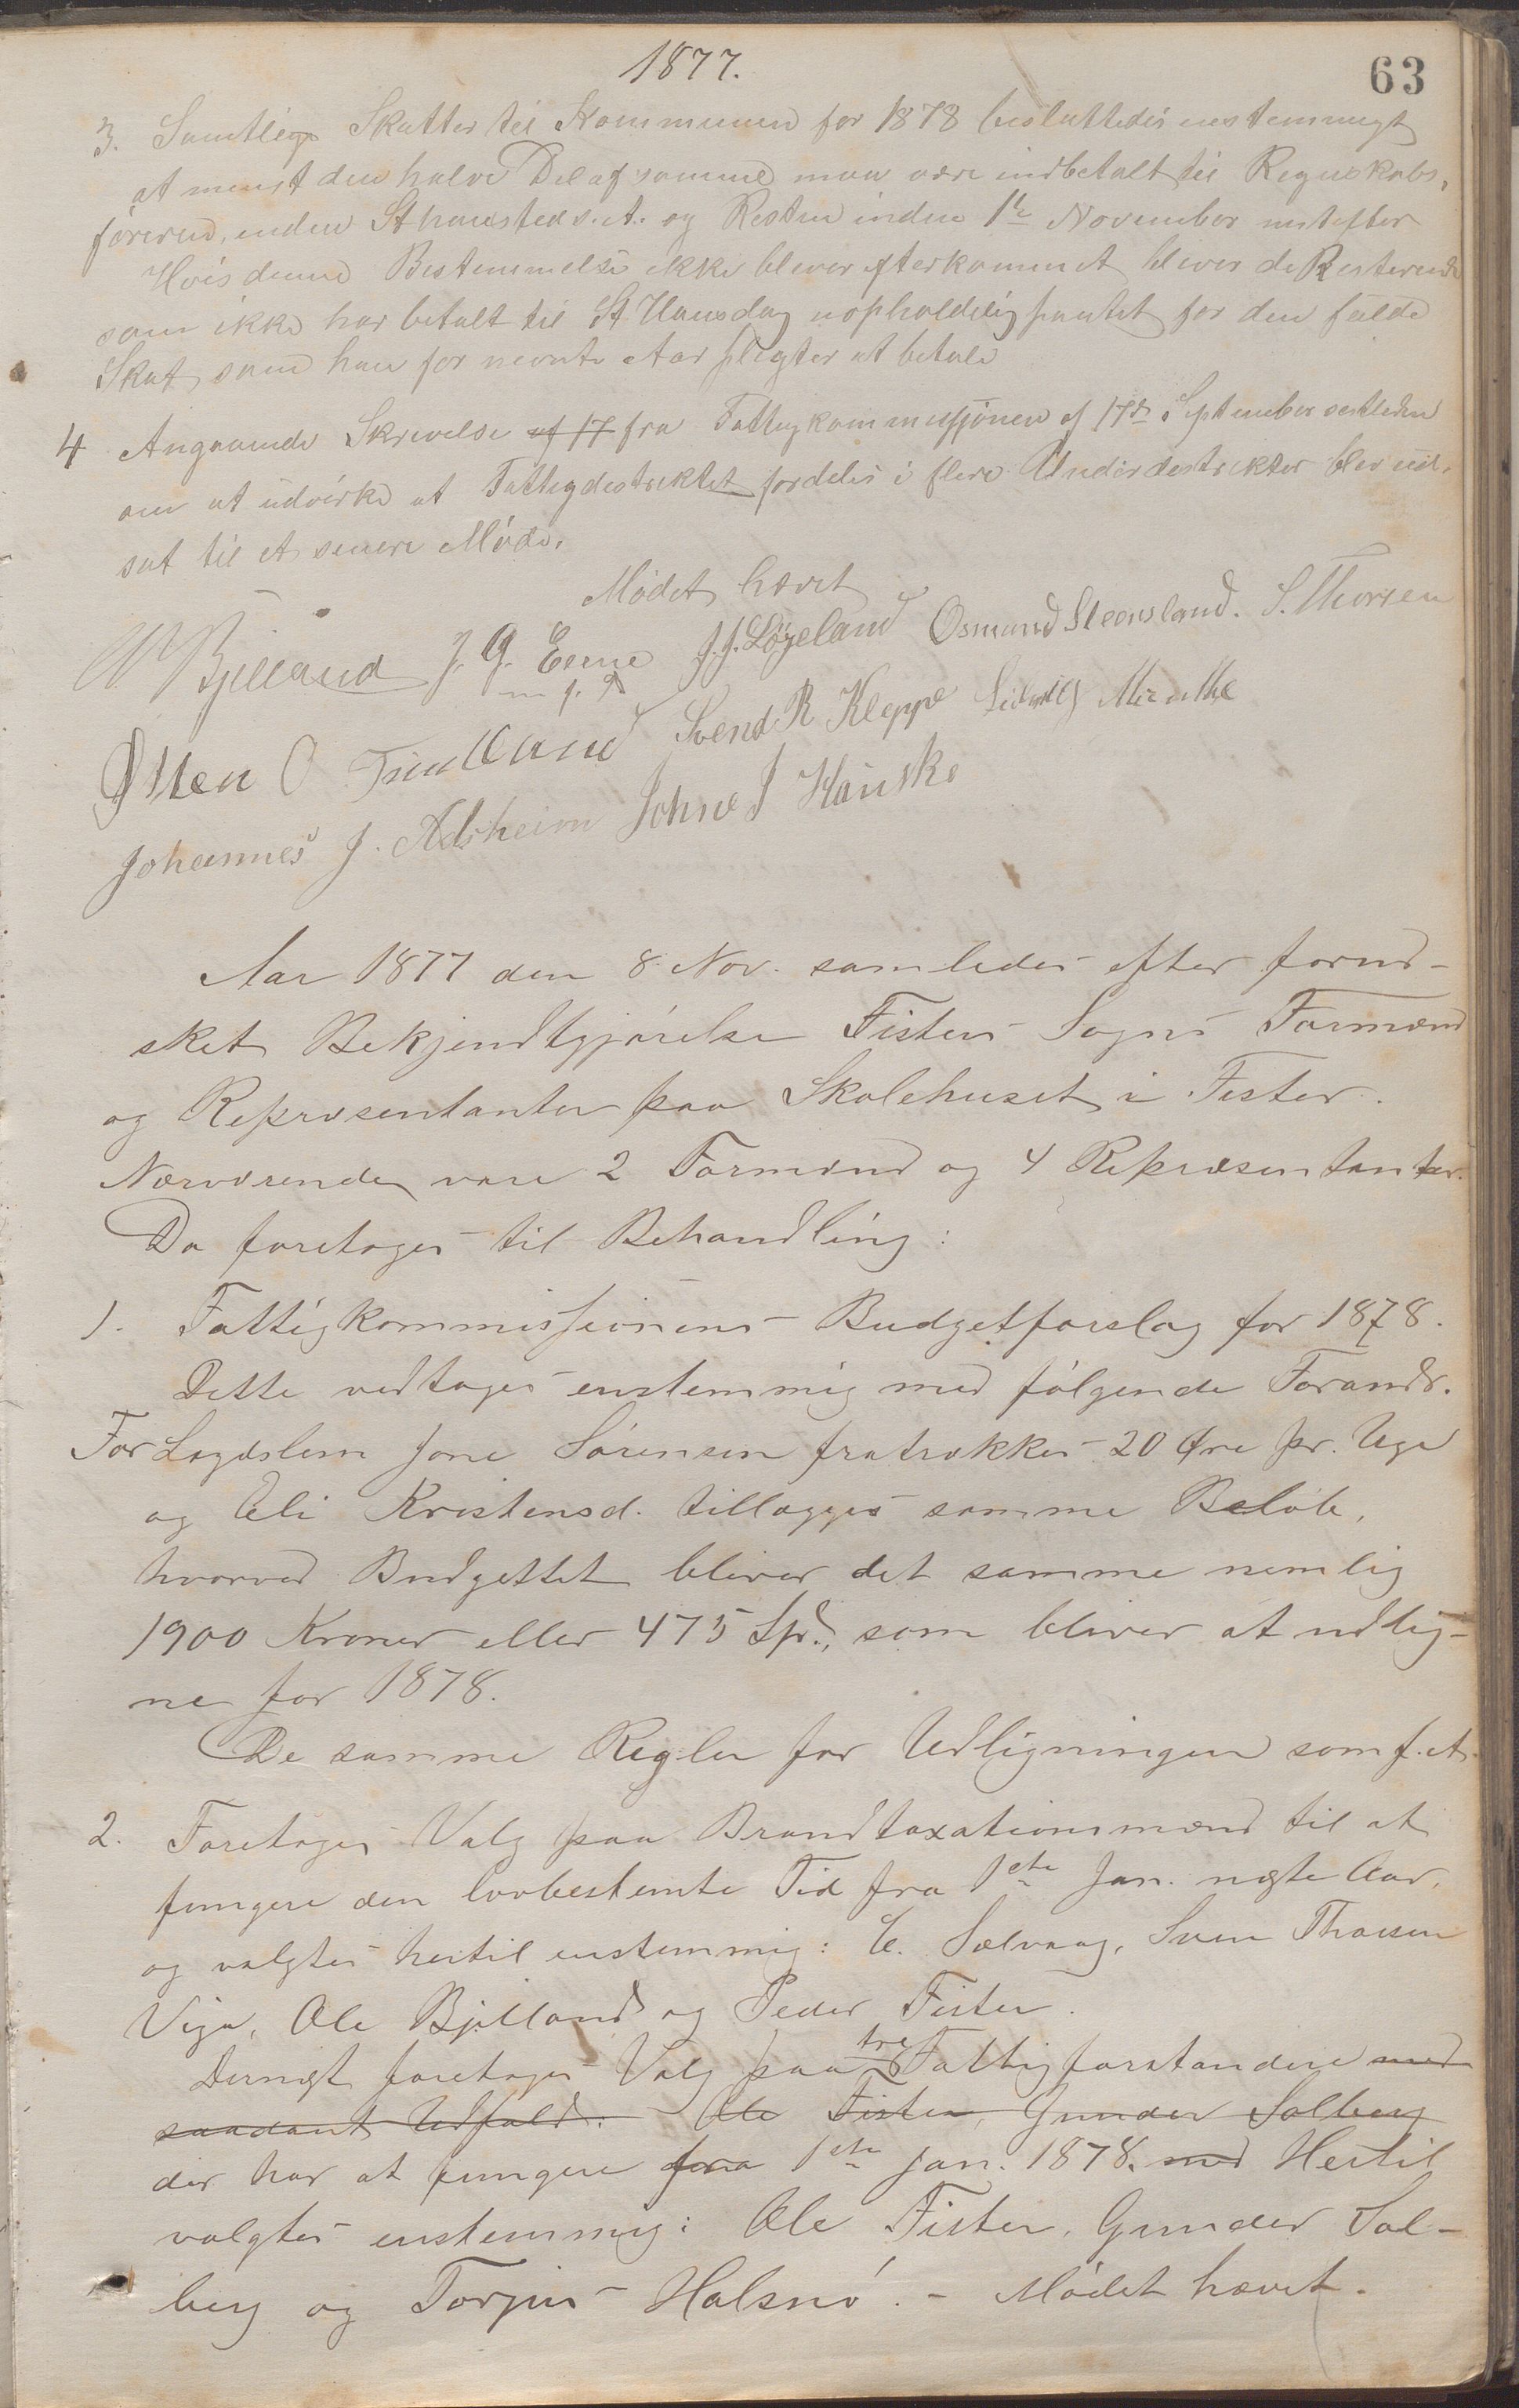 1877.
63
3. Samtlige Skatter til Kommunen for 1878 besluttedes enstemmigt
at minst den halve Del af samme maa være indbetalt til Regnskabs,
føreren, inden St hansted s. A. og Resten inden 1te November nestefter
Hvis denne Bestemmelse ikke bliver efterkommet bliver de Resterende
som ikke har betalt til St Hansdag uopholdelig pantet for den fulde
Skat som han for nevnte Aar pligter at betale
4 Angaaende Skrivelse af 17 fra Fattigkommissjonen af 17de September sestleden
om at udvirke at Fattigdestriktet fordeles i flere Underdestrikter blev ud,
sat til et senere Møde.
Mødet hævet
W Bjelland J. G. Eerne J. J. Løgeland Osmund Steensland. S. Thorsen
m f. P
Østen O Tindland Svend R Kleppe Ludvig
Johannes J. Adsheim Johne J Hauske
Aar 1877 den 8 Nov. samledes efter forud-
sket Bekjendtgjørelse Fisters Sogns Formænd
og Repræsentanter paa Skolehuset i Fister.
Nærværende vare 2 Formænd og 4 Repræsentanter.
Da foretoges til Behandling:
1. Fattigkommissionens Budgetforslag for 1878.
Dette vedtoges enstemmig med følgende Forandr.
For Lægdslem Jone Sørensen fratrækkes 20 Øre pr. Uge
og Eli Kristensd. tillægges samme Beløb,
hvorved Budgettet bliver det samme nemlig
1900 Kroner eller 475 Spd., som bliver at udlig-
ne for 1878.
De samme Regler for Udligningen som f. A.
2. Foretoges Valg paa Brandtaxationsmænd til at
fungere den lovbestemte Tid fra 1ste Jan. næste Aar,
og valgtes hertil enstemmig: E. Sælvaag, Sven Thorsen
Viga, Ole Bjelland og Peder Fister.
Dernæst foretoges Valg paa tre Fattigforstandere med
saadant Udfald: Ole Fister, Gunder Solberg
der har at fungere fra 1ste Jan. 1878. med Hertil
valgtes enstemmig: Ole Fister, Gunder Sol-
berg og Torjus Halsnø. - Mødet hævet.